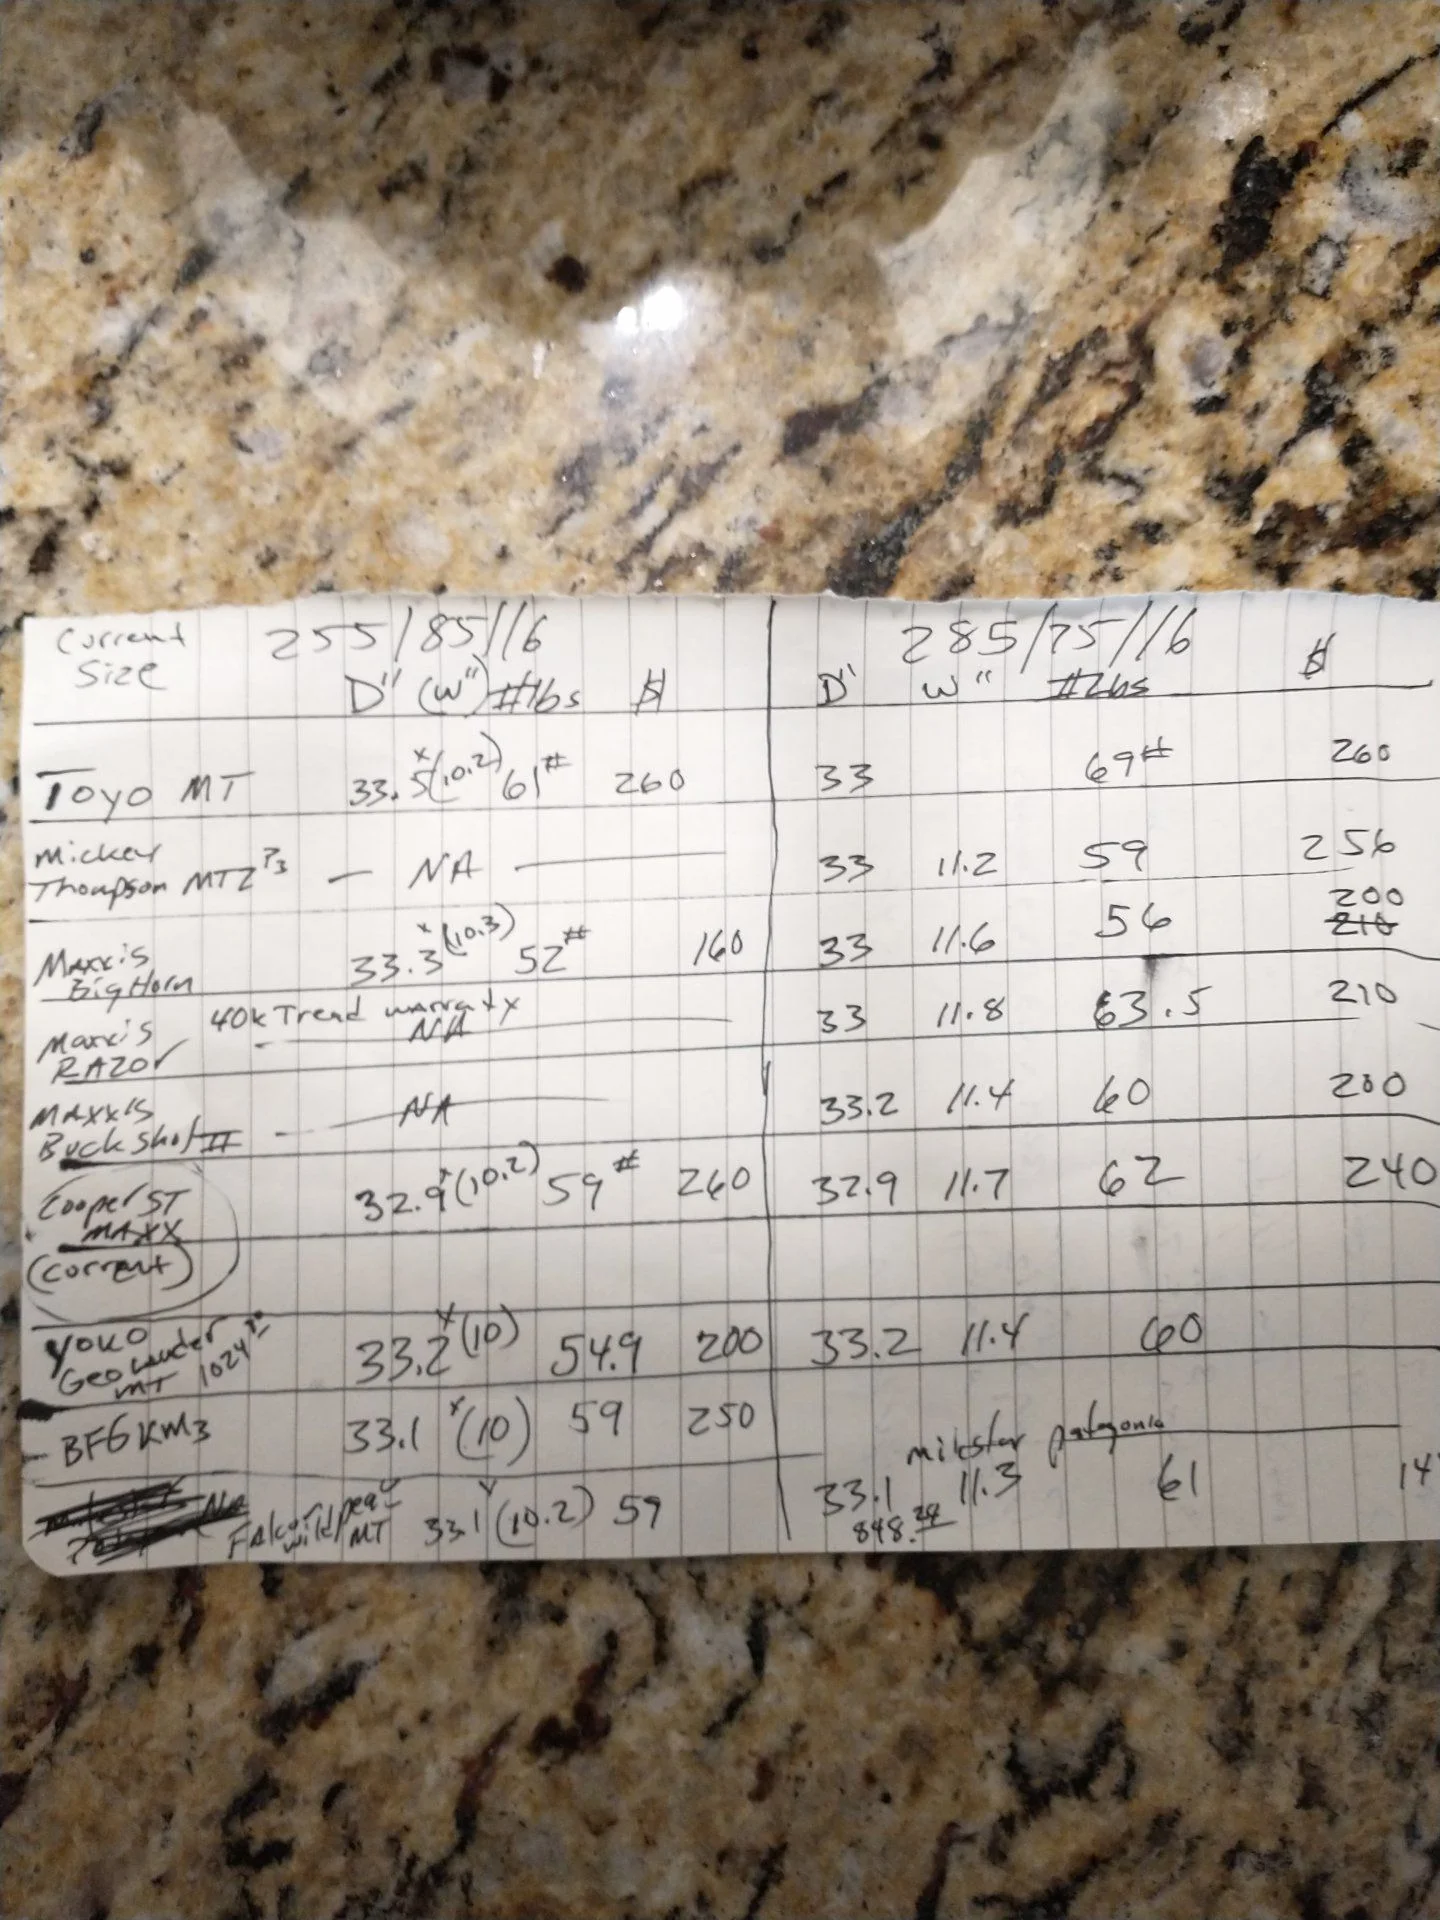 Current 255/85//6 285/75//6
Size D" (W") #lbs $ D" W" #Lbs $
Toyo MT 33.5x(10.2) 61# 260 33 69# 260
Mickey
Thompson MTZ P3 — NA — 33 11.2 59 256
Maxxis 33.3x(10.3) 52# 160 33 11.6 56 200
BigHorn 210
40k Tread warratyx
Maxxis - NA — 33 11.8 63.5 210
RAZOR
MAXXIS
Buck shot II - NA — 33.2 11.4 60 200
Cooper ST 32.9x(10.2) 59# 260 32.9 11.7 62 240
MAXX
(current)
Yoko 33.2x(10) 54.9 200 33.2 11.4 60
Geolander
MT 1024
BFG KM3 33.1x(10) 59 250
milestar patagonia
NA Falcon wildpeak MT 33.1x(10.2) 59 33.1 11.3 61 14
848.24